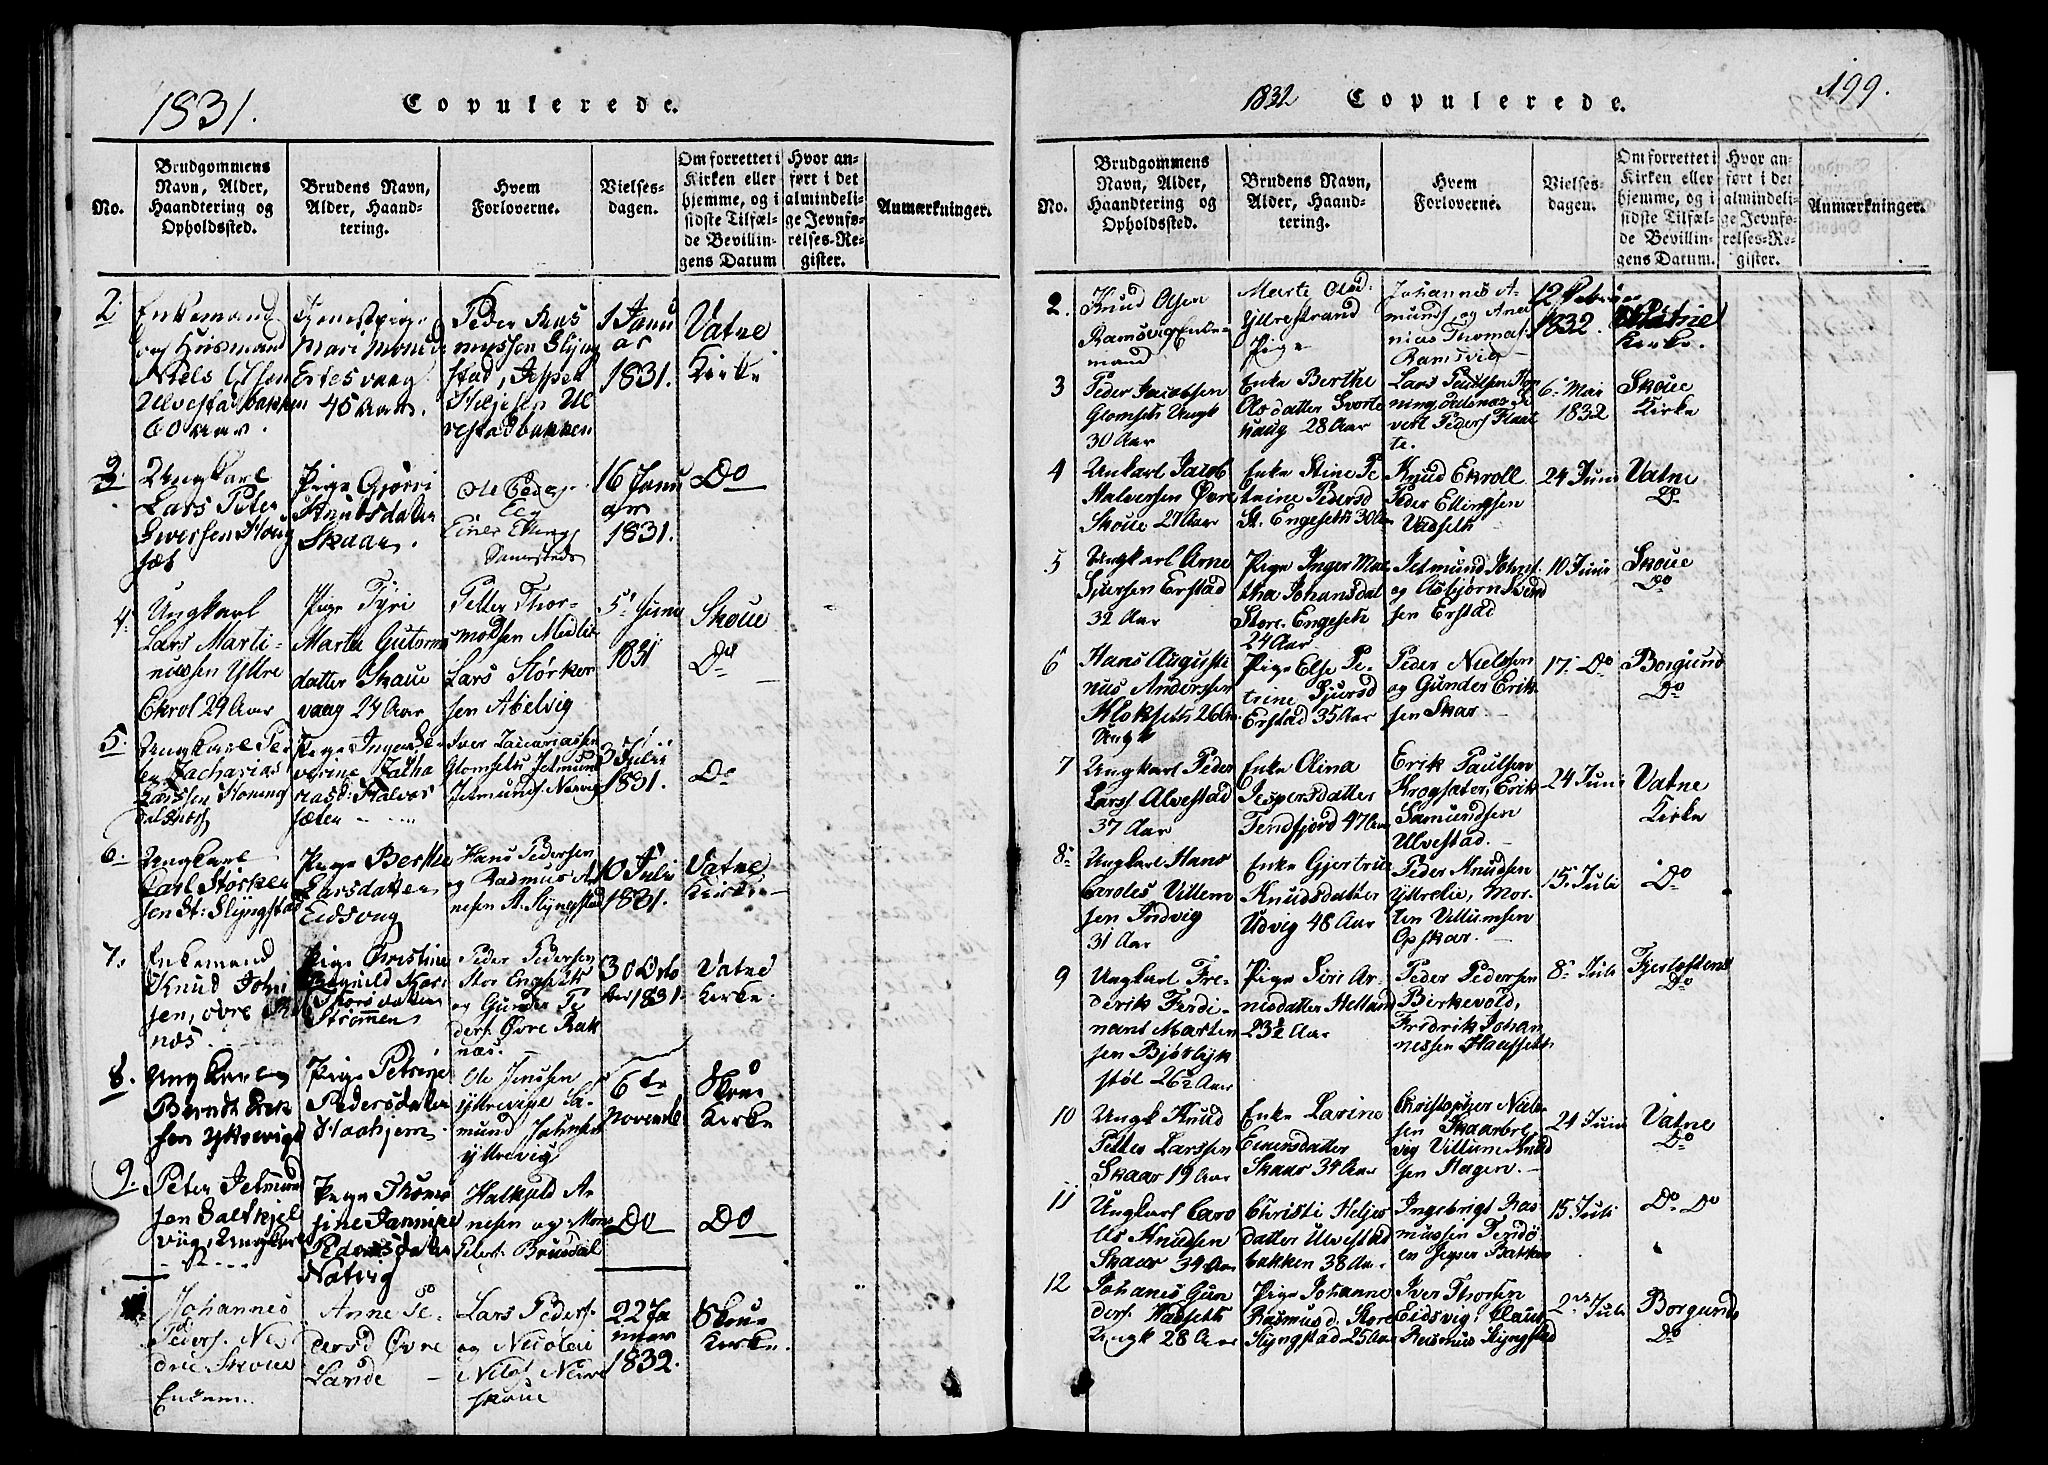 1831.
Copulerede.
No.
Brudgommens
Navn, Alder,
Haandtering og
Opholdssted.
Brudens Navn,
Alder, Haand-
tering.
Hvem
Forloverne.
Vielses-
dagen.
Om forrettet i
Kirken eller
hjemme, og i
sidste Tilfæl-
de Bevillin-
gens Datum
Hvor an-
ført i det
almindeli-
ge Jevnfø-
relses-Re-
gister.
Anmærkninger.
2.
Enkemand
og Huusmand
Niels
Ulvestadbakken
60 Aar.
Tjenestpige
Mari
Eidsvaag
45 Aar.
Peder Ras
mussen Slyng
stad, Jesper
Heljesen Ul
vestadbakken
1 Janu
ar
1831.
Vatne
Kirke
3.
Ungkarl
Lars Peter
Iversen Houg
sæt
Pige Gjørri
Knudsdatter
Skaar.
Ole Peders.
Einer Elling
16 Janu
ar
1831.
Do
4.
Ungkarl
Lars Marti-
nussen Yttre
Ekrol 29 Aar
Pige Tyri
Marta Gutorms
datter Skaue
vaag 24 Aar
Petter Thor-
modsen
Lars Størker
sen Abelvig
5t Juni
1831
Skoue
Do
5.
Ungkarl Pe
ter Zacharias
Larssen
Pige Inger Se
verine Zacha
riasd: Halvor
sæter
Iver Zacariassen
Glomset, Jetmund
Jetmunds. Nørvig
3 Julii
1831.
Do
6.
Ungkarl
Carl Størker
sen St: Slyngstad
Pige Berthe
Larsdatter
Eidsvag
Hans Pedersen
og Rasmus A
nesen St. Slyngstad
10 Juli
1831.
Vatne
Kirke
7.
Enkemand
Knud John
sen, øvre Rak
næs
Pige Christine
Ragnild Kar
Strømmen
Peder Pedersen
Stor Engeseth
og Gunder Pe
ders. Øvre Rak
næs.
30 Octo
ber 1831.
Vatne
Kirke.
8.
Ungkarl
Berndt Erik
sen Yttrevig
Pige Petrine
Pedersdatter
Haahjem.
Ole Jensen
Yttrevig Sa-
mund Johnsen
yttrevig
6te
Novembr
Skoue
Kirke
9.
Peter Jetmund
sen Saltkjel
viig, Ungkarl
Pige Thoma
sine Jannike
Pedersdatter
Natvig
Halkjeld Ar
nesen og Mons
Peters. Brusdal
Do
Do
Johannes
Peders. Ne
dre Skoue
Enkem.
Anne Pe-
dersd Øvre
Lande
Lars Peders.
og Nicolai
Nils. Nedre
skoue
22 Ja
nuar
1832.
Skoue
Kirke.
1832
Copulerede.
199.
No.
Brudgommens
Navn, Alder,
Haandtering og
Opholdssted.
Brudens Navn,
Alder, Haand-
tering.
Hvem
Forloverne.
Vielses-
dagen.
Om forrettet i
Kirken eller
hjemme, og i
sidste Tilfæl-
de Bevillin-
gens Datum.
Hvor an-
ført i det
almindeli-
ge Jevnfø-
relses-Re-
gister.
Anmærkninger.
2.
Knud Olsen
Ramsvig Enke-
mand
Marte Olsd:
Yttrestrand
Pige
Johannes A-
munds. og Ana
nias Thomas.
Ramsvig
12 Februar
1832.
Vatne
Kirke.
3
Peder Jacobsen
Glomseth Ungk
30 Aar
Enke Berthe
Olsdatter Svorte
haug 28 Aar
Lars Paulsen Hon
ningdalsnæs Si
vert Peders Flaat
te.
6te Mai
1832
Skoue
Kirke
4
Unkarl Jacob
Halversen Øvre
Skoue 27 Aar
Enke Stine Pe
trine Pedersd
St. Engeseth 30 Aar
Knud Ekroll
Peder Ellingsen
Vadseth
24 Juni
Vatne
Do
5
Ungkarl Arne
Sjursen Erstad
32 Aar
Pige Inger Mar
tha Johansdat
Store Engeseth
24 Aar
Jetmund Johns.
og Asbjørn Knud
sen Erstad
10 Juni
Skoue
Do
6
Hans Augusti
nus Anderssen
Klokseth 26 Aar
Ungk
Pige Else Pe-
trine Sjursd
Erstad 35 Aar
Peder Nielssen
og Gunder Erik
sen Skar.
17. Do
Borgund
Do
7
Ungkarl Peder
Larss. Alvestad
37 Aar
Enke Olina
Jespersdatter
Tendfjord 47 Aar
Erik Paulsen
Krogsæter, Erik
Samundsen
Ulvestad.
24 Juni
Vatne
Kirke
8
Ungkarl Hans
Caroles Villem
sen Indvig
31 Aar
Enke Gjertrue
Knudsdatter
Udvig 48 Aar
Peder Knudsen
Yttrelie, Mor-
ten Villumsen
Opskar.
15. Juli
Do
9
Ungkarl Fre-
derik Ferdi-
nant Marten
sen Bjørlyk
støl 26½ Aar
Pige Siri Ar-
nesdatter Helland
23½ Aar
Peder Pedersen
Birkevold,
Fridrik Johan
nessen
8de Juli
Fjertoftens
Do
10
Ungk Knud
Petter Larssen
Skaar 19 Aar
Enke Larine
Einersdatter
Skaar 34 Aar
Christopher Niels
sen Skaarbre
vig Villum Knud
sen Hagen.
24 Juni
Vatne
Do
11
Ungkarl Caro
les Knudsen
Skaar 34 Aar
Christi Heljes
datter Ulvestad
bakken 38 Aar
Ingebrigt Ras
mussen Terdø
en Jesper Bakken
15 Juli
Do Do
12
Johanes Gun
ders. Vadseth
Ungk 28 Aar
Pige Johanne
Rasmusd. Store
Slyngstad 25 Aar
Iver Thoresen
Eidsvig, Claus
Rasmus Slyngstad
2den Juli
Borgunds
Do